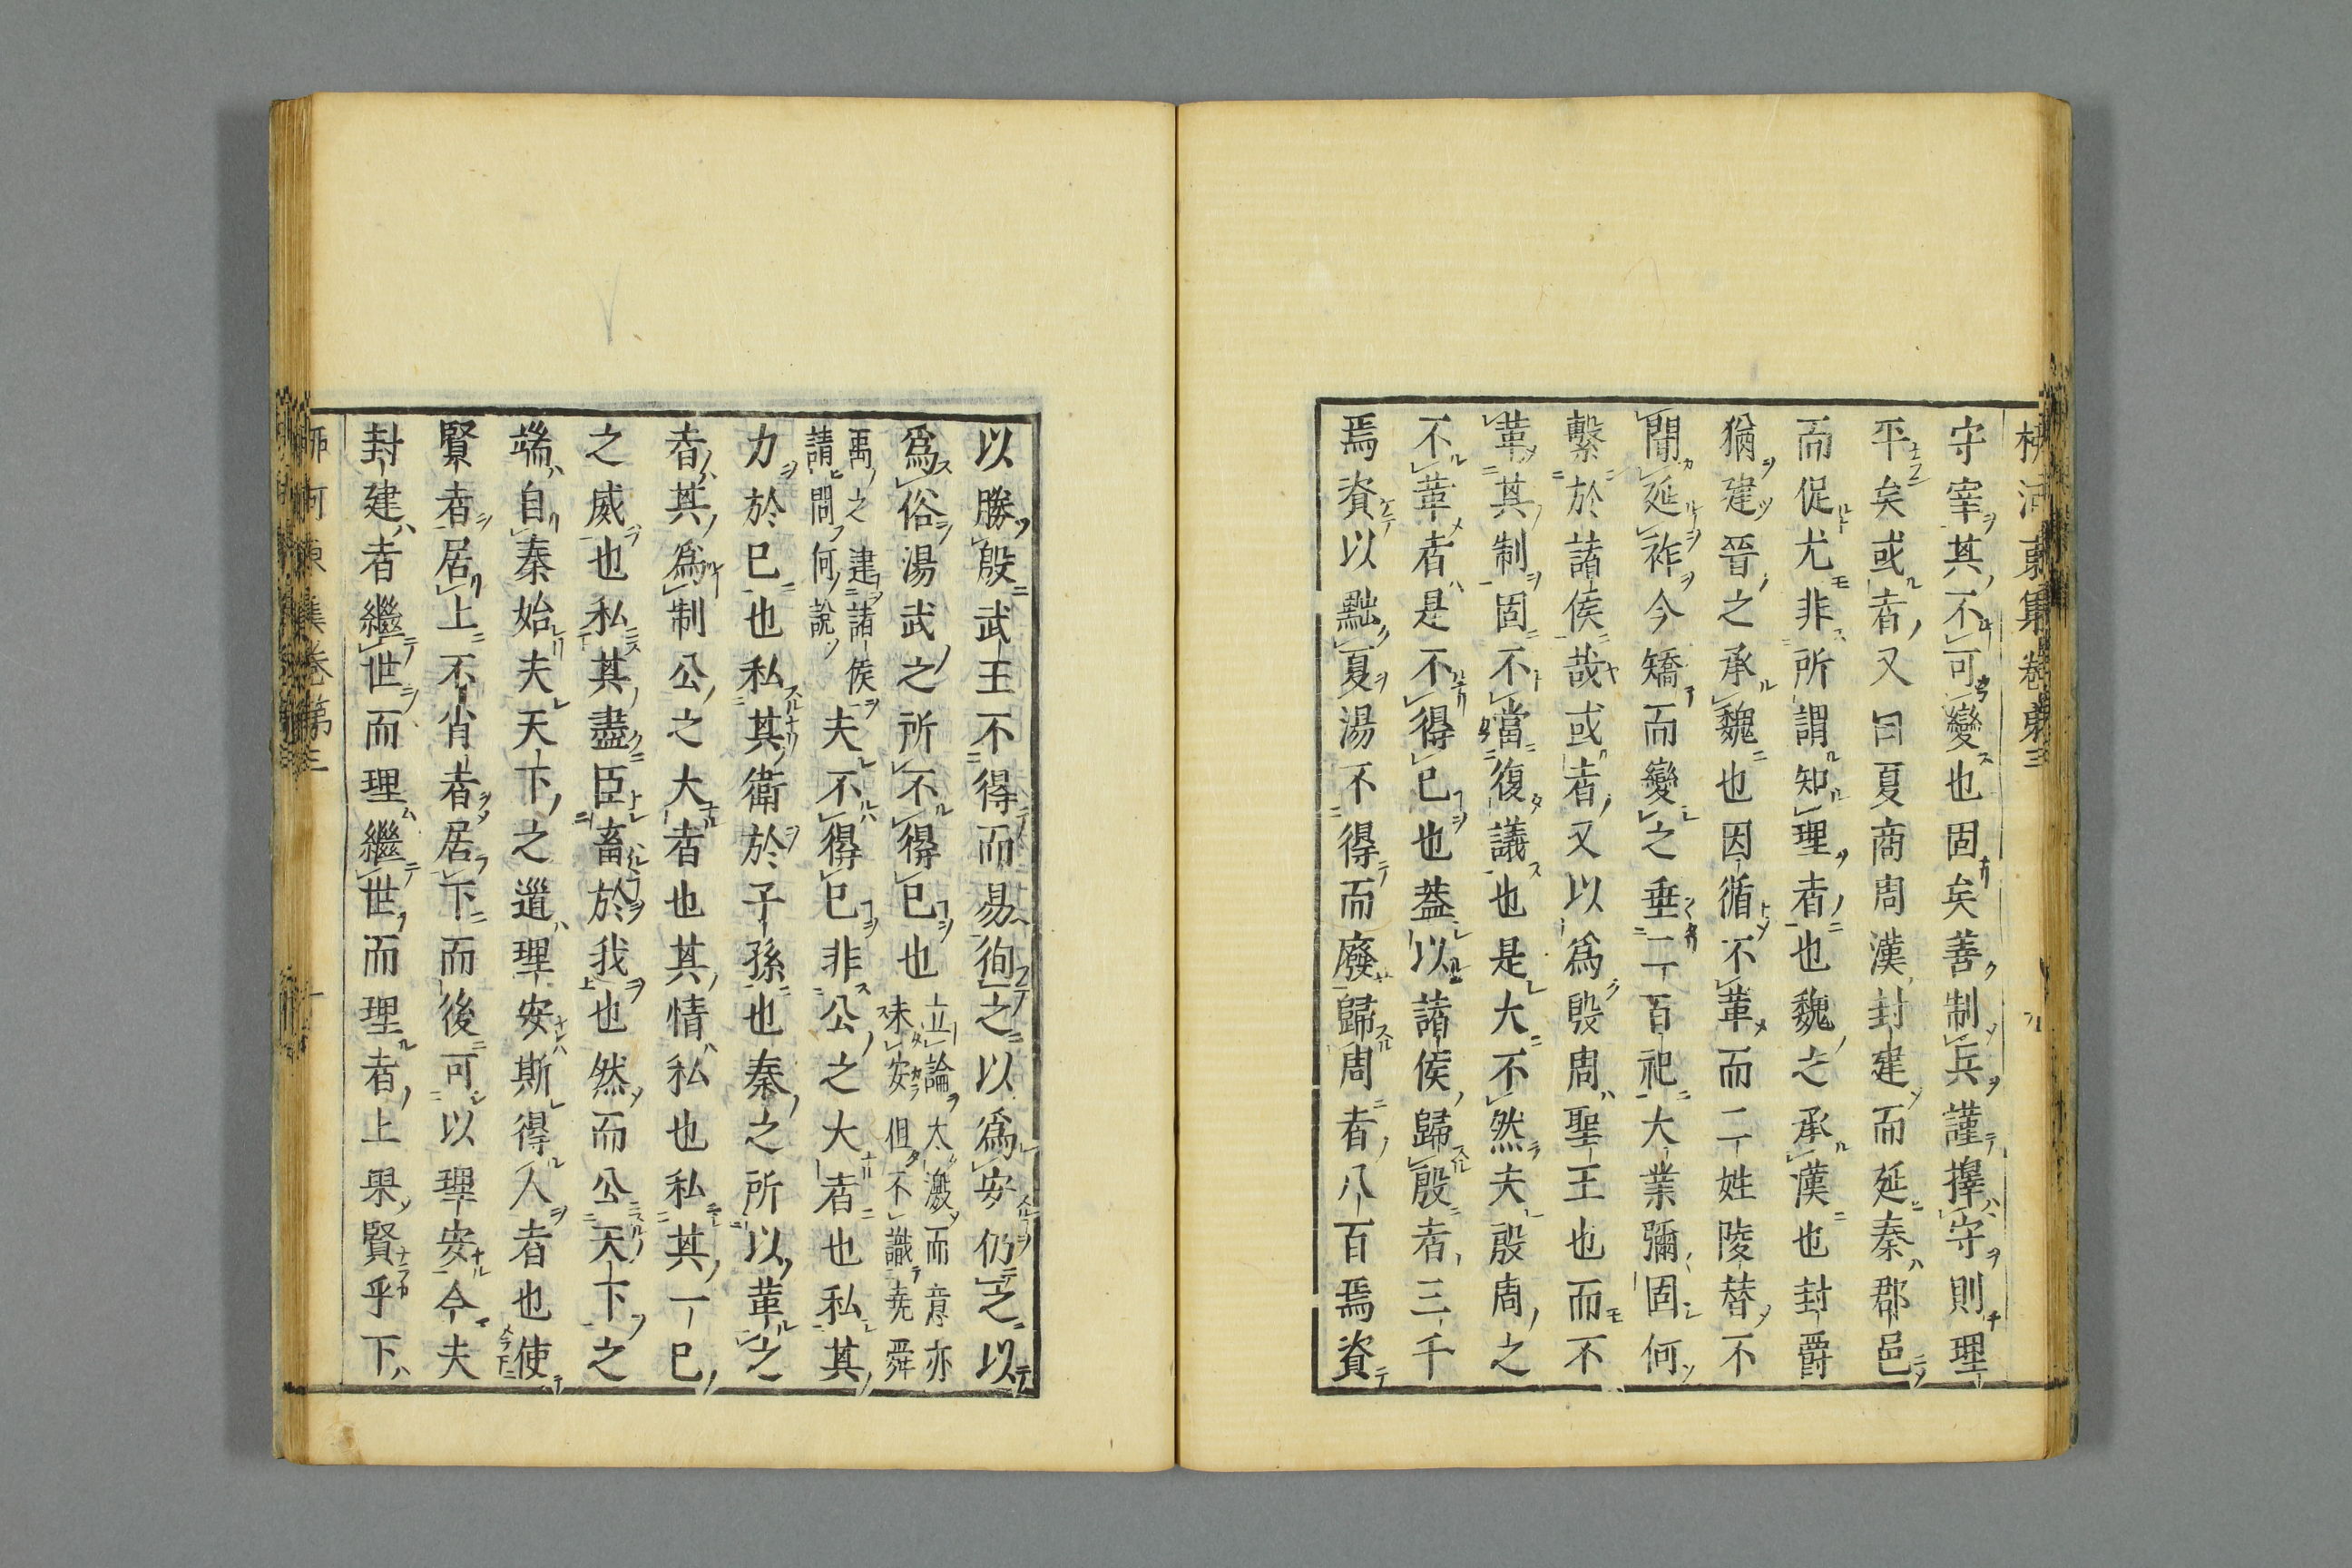 柳河東集卷第三
守宰其不可變也固矣善制兵謹擇守則理
平矣或者又曰夏商周漢封建而延秦郡邑
而促尤非所謂知理者也魏之承漢也封爵
猶建晉之承魏也因循不革而二姓陵替不
聞延祚今矯而變之垂二百祀大業彌固何
繫於諸侯哉或者又以爲殷周聖王也而不
革其制固不當復議也是大不然夫殷周之
不革者是不得已也蓋以諸侯歸殷者三千
焉資以黜夏湯不得而廢歸周者八百焉資
以勝殷武王不得而易徇之以爲安仍之以
爲俗湯武之所不得已也立論太激而意亦未安但不識堯舜
禹之建諸侯請問何說夫不得已非公之大者也私其
力於已也私其衛於子孫也秦之所以革之
者其爲制公之大者也其情私也私其一已
之威也私其盡臣畜於我也然而公天下之
端自秦始夫天下之道理安斯得人者也使
賢者居上不肖者居下而後可以理安今夫
封建者繼世而理繼世而理者上果賢乎下
柳河東集卷第三